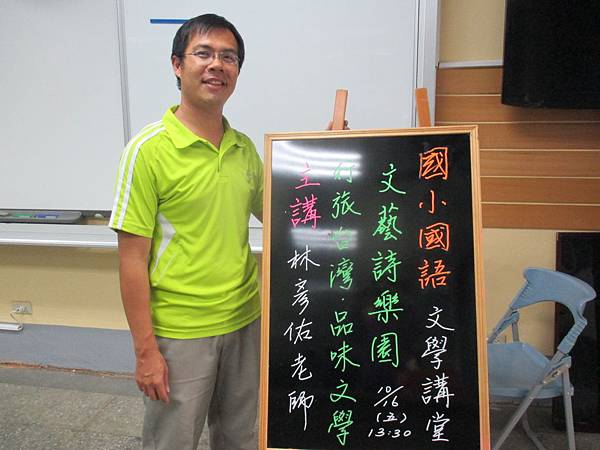 國小國語 文學講堂
文藝詩樂園 10/16(五) 13:30
行旅台灣·品味文學
主講 林彥佑老師